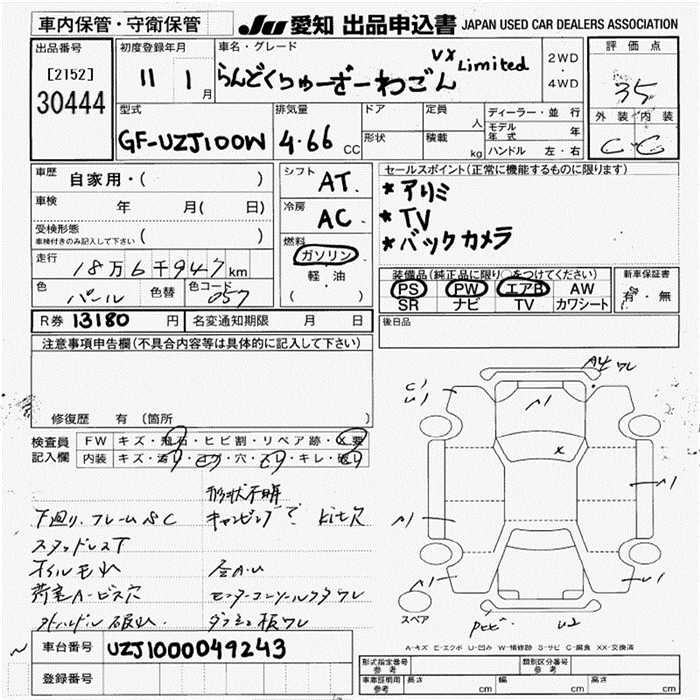 車内保管・守衛保管
JU 愛知 出品申込書 JAPAN USED CAR DEALERS ASSOCIATION
出品番号
[2152]
30444
初度登録年月
11 1月
車名・グレード
らんどくりゅーざーわごん VX Limited
2WD
・
4WD
評価点
3.5
外装 内装
C C
型式
GF-UZJ100W
排気量
4.66 CC
ドア
形状
定員 人
積載 kg
ディーラー・並行
モデル年式 年
ハンドル 左・右
車歴 自家用・( )
車検 年 月( 日)
受検形態
車検付きのみ記入して下さい ( )
走行 18万6千947km
色 パール 色替 色コード 057
シフト AT
冷房 AC
燃料
ガソリン
軽・油
( )
セールスポイント(正常に機能するものに限ります)
* アルミ
* TV
* バックカメラ
装備品(純正品に限り○をつけてください)
PS PW エアB AW
SR ナビ TV カワシート
新車保証書
有・無
R券 13180 円 名変通知期限 月 日
後日品
注意事項申告欄(不具合内容等は具体的に記入して下さい)
修復歴 有 (箇所 )
検査員記入欄
FW キズ・飛石・ヒビ割・リペア跡・X要
内装 キズ・汚れ・コゲ・穴・スレ・キレ・破れ
形状不明
下廻り、フレームSC キャンピングで kit穴
スタッドレスT
オイルモレ 全A.U
荷室A・ビス穴 センターコンソールフタワレ
ダッシュ板ワレ
A4 ワレ
C1
U1
A1
X
A1
A1
A1
U1
U2
スペア
A-キズ E-エクボ U-凹み W-補修跡 S-サビ C-腐食 XX-交換済
車台番号 UZJ1000049243
登録番号
形式指定番号 参考
類別区分番号 参考
車庫証明用 参考 長さ cm 幅 cm 高さ cm